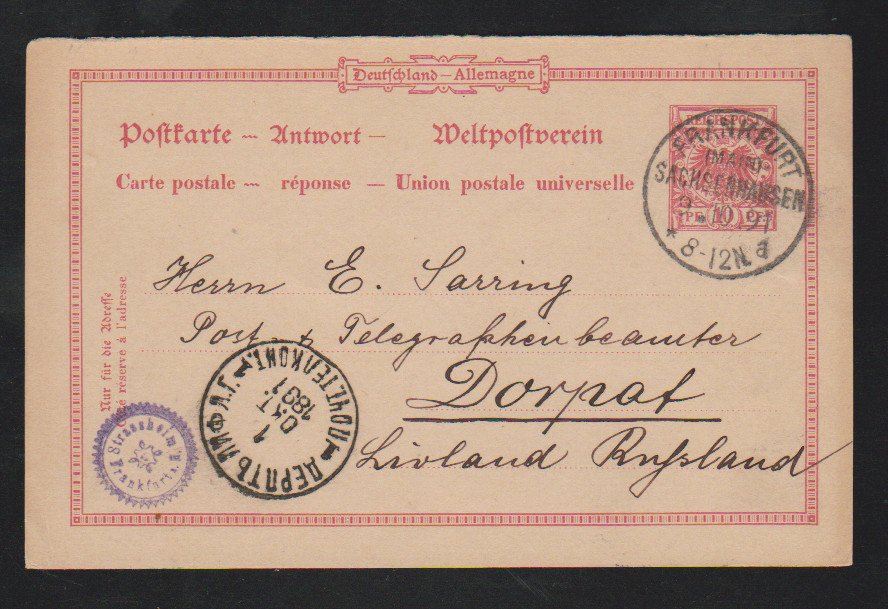 Deutschland – Allemagne
Postkarte – Antwort – Weltpostverein
Carte postale – réponse – Union postale universelle
REICHSPOST
10
PF PF
FRANKFURT
(MAIN)
SACHSENHAUSEN
9. 10 91
* 8-12N. a
Herrn E. Sarring
Post- & Telegraphenbeamter
Dorpat
Livland Russland
Nur für die Adresse
Côté réservé à l'adresse
ДЕРПТЪ ЛИФЛ. Г. ПОЧТ.ТЕЛ.КОНТ.
1
ОКТ.
1891
Strassheim
Frankfurt a. M.